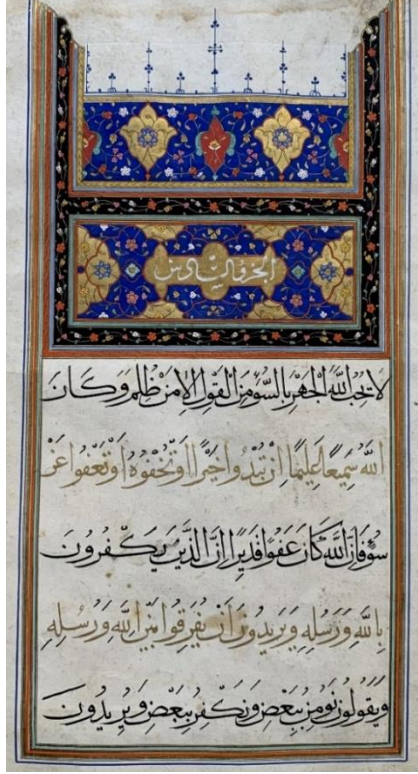 الجزء السادس
لا يحب الله الجهر بالسوء من القول الا من ظلم وكان
الله سميعا عليما ان تبدوا خيرا او تخفوه او تعفوا عن
سوء فان الله كان عفوا قديرا ان الذين يكفرون
بالله ورسله ويريدون ان يفرقوا بين الله ورسله
ويقولون نؤمن ببعض ونكفر ببعض ويريدون